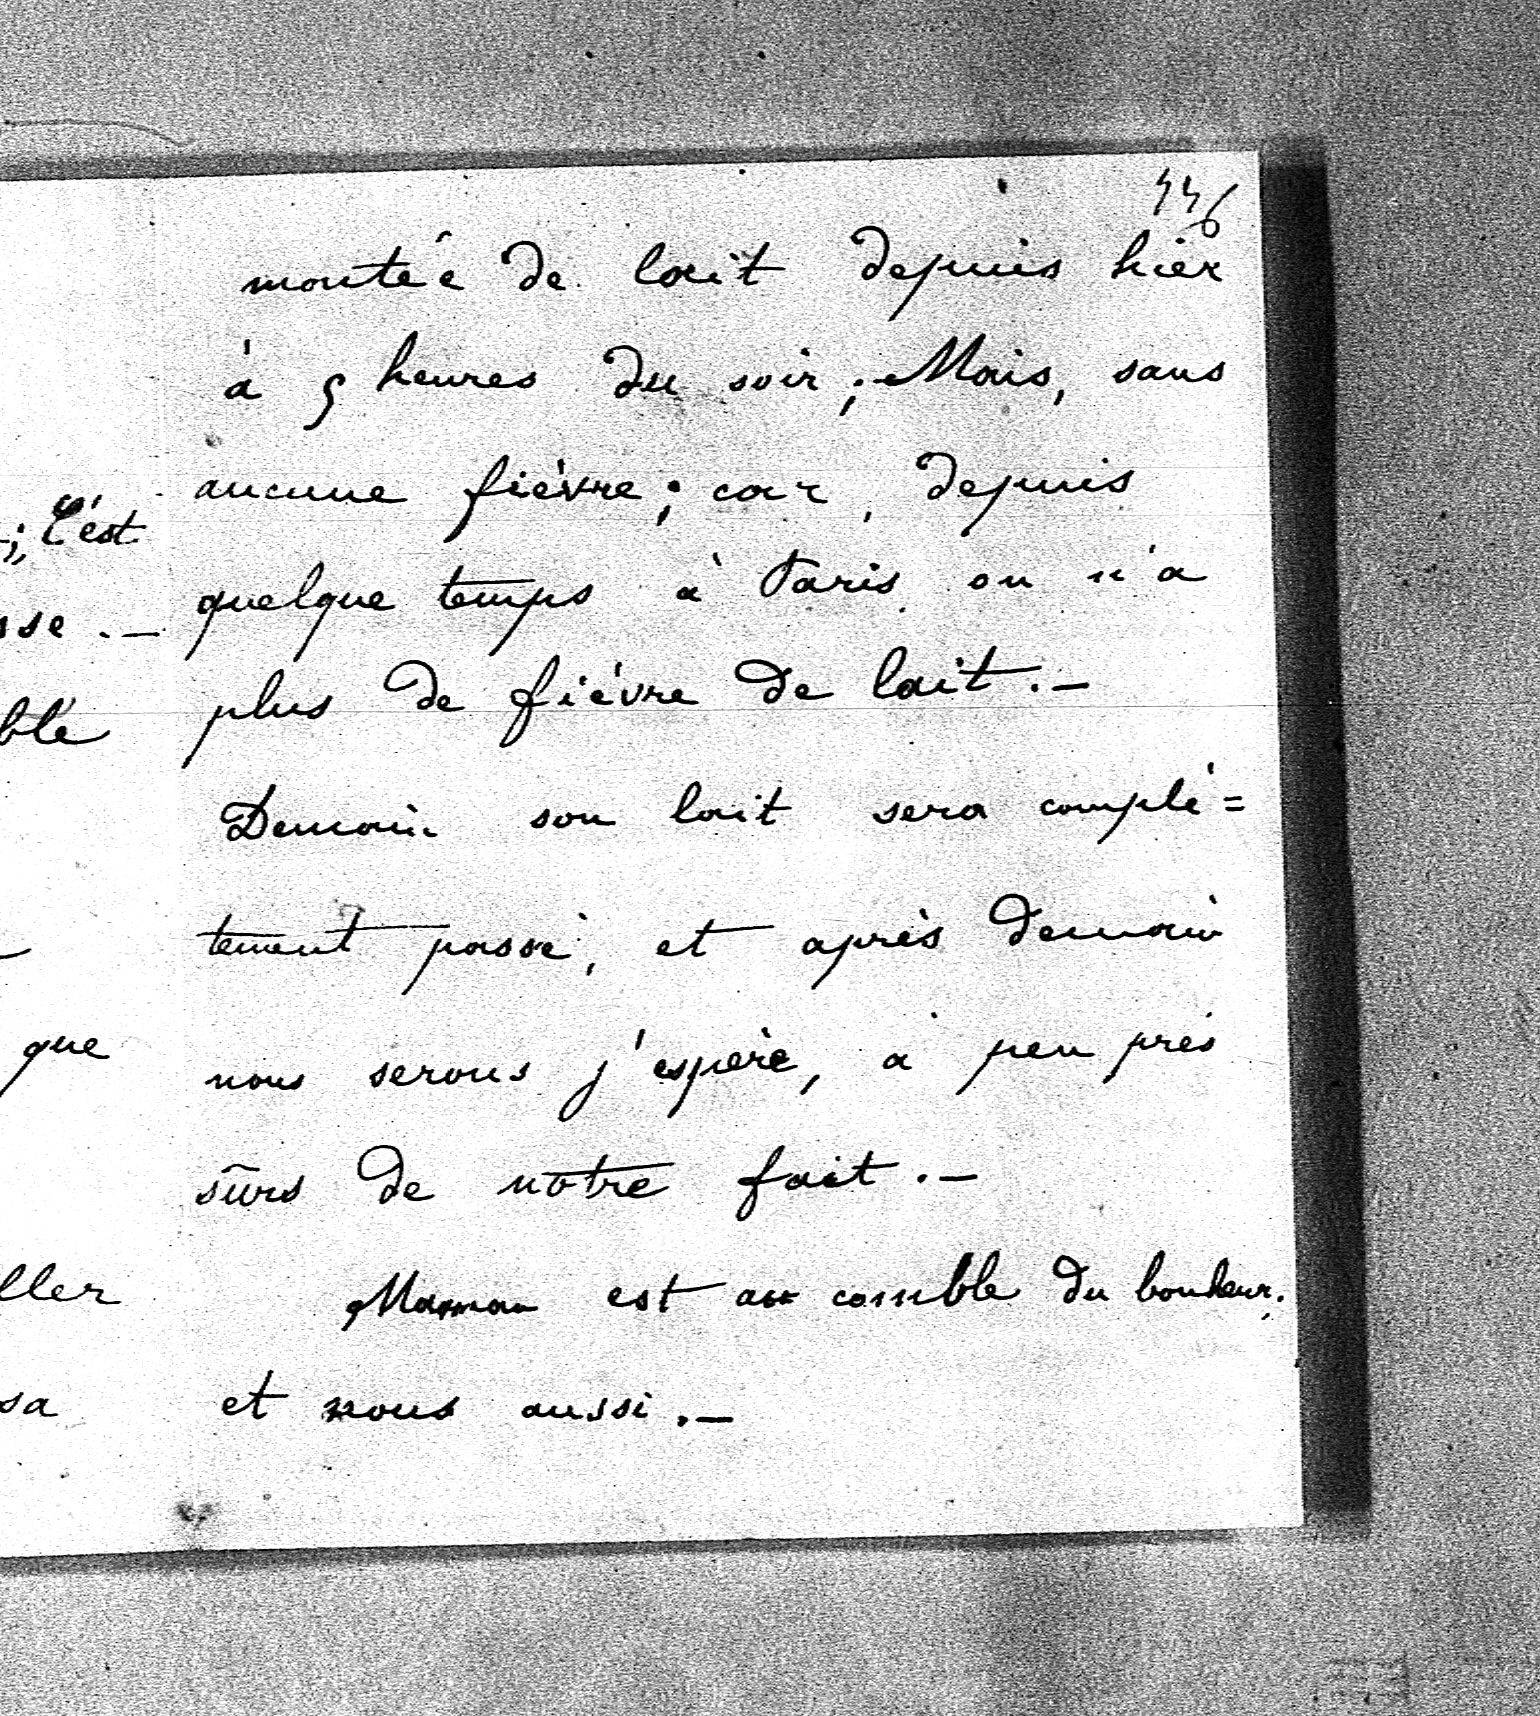 446
montée de lait depuis hier
à 5 heures du soir ; Mais, sans
aucune fièvre ; car, depuis
quelque temps à Paris on n'a
plus de fièvre de lait. —
Demain son lait sera complé=
tement passé, et après demain
nous serons j'espère, à peu près
sûrs de notre fait. —
Maman est au comble du bonheur.
et nous aussi. —
; C'est
sse. —
blé
que
ller
sa